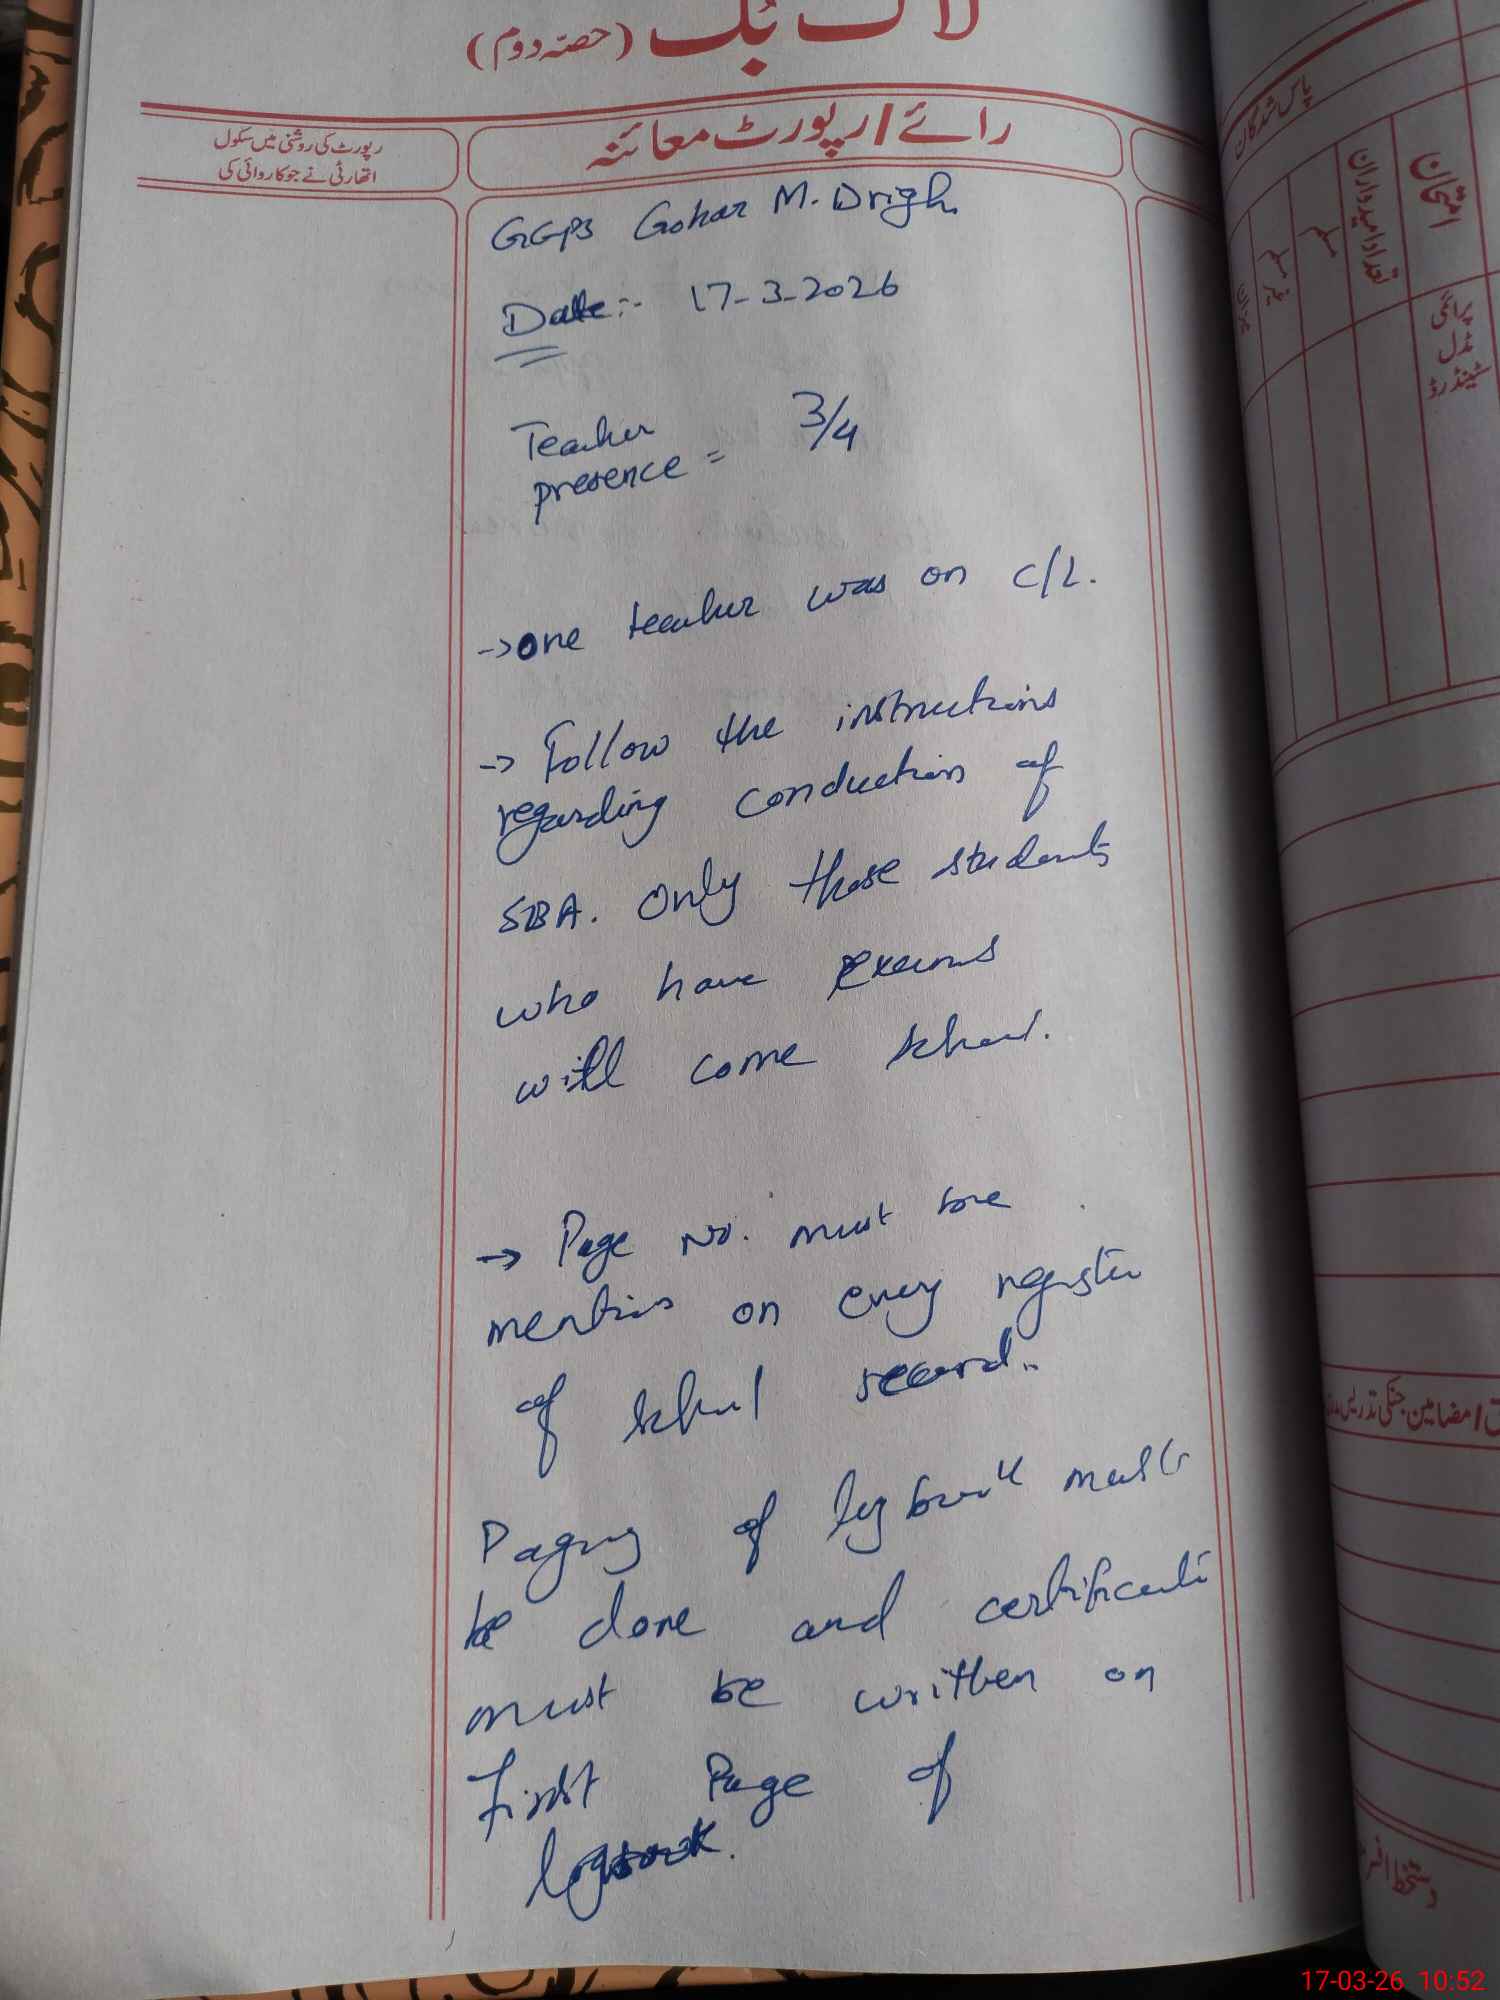 لاگ بُک (حصہ دوم)
رائے / رپورٹ معائنہ
رپورٹ کی روشنی میں سکول
اتھارٹی نے جو کاروائی کی
GGPS Gohar M. Drigh.
Date:- 17-3-2026
Teacher
presence = 3/4
→ one teacher was on C/L.
→ Follow the instructions
regarding conduction of
SBA. Only those students
who have exams
will come school.
→ Page No. must be
mention on every register
of school record..
Paging of log book must
be done and certificate
must be written on
First Page of
logbook.
پاس شدگان
امتحان
تعداد امیدواران
مسلم
غیر مسلم
میزان
پرائمری
مڈل
سٹینڈرڈ
مضامین جنکی تدریس
دستخط افسر
17-03-26 10:52